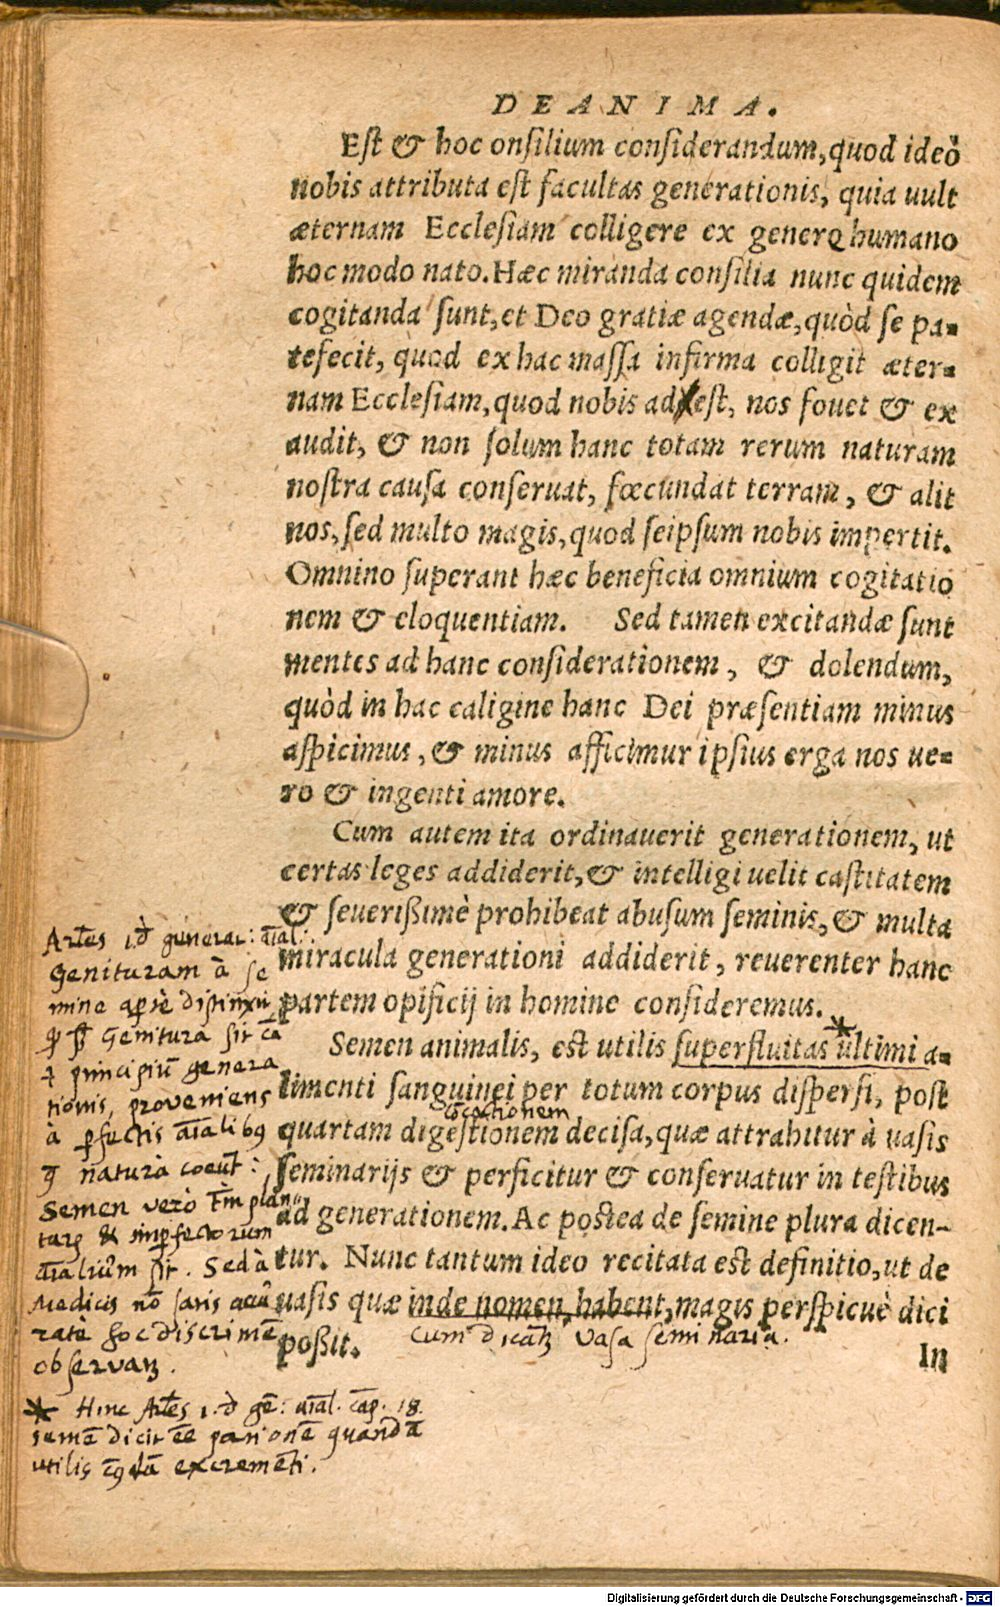 DE ANIMA.
Est & hoc onsilium considerandum, quod ideò
nobis attributa est facultas generationis, quia uult
æternam Ecclesiam colligere ex genere humano
hoc modo nato. Hæc miranda consilia nunc quidem
cogitanda sunt, et Deo gratiæ agendæ, quòd se pa-
tefecit, quod ex hac massa infirma colligit æter-
nam Ecclesiam, quod nobis adest, nos fouet & ex
audit, & non solum hanc totam rerum naturam
nostra causa conseruat, fœcundat terram, & alit
nos, sed multo magis, quod seipsum nobis impertit.
Omnino superant hæc beneficia omnium cogitatio
nem & eloquentiam. Sed tamen excitandæ sunt
mentes ad hanc considerationem, & dolendum,
quòd in hac caligine hanc Dei præsentiam minus
aspicimus, & minus afficimur ipsius erga nos ue-
ro & ingenti amore.
Cum autem ita ordinauerit generationem, ut
certas leges addiderit, & intelligi uelit castitatem
& seuerißimè prohibeat abusum seminis, & multa
miracula generationi addiderit, reuerenter hanc
partem opificij in homine consideremus.
Semen animalis, est utilis superfluitas * ultimi a-
limenti sanguinei per totum corpus dispersi, post
coctionem
quartam digestionem decisa, quæ attrahitur à uasis
seminarijs & perficitur & conseruatur in testibus
ad generationem. Ac postea de semine plura dicen-
tur. Nunc tantum ideo recitata est definitio, ut de
uasis quæ inde nomen habent, magis perspicuè dici
poßit.
cum dicātʒ vasa seminaria.
In
genituram à se
mine
genitura sit
principiū genera
tionis, proveniens
à
natura
Semen vero
& imperfectorum
sit. Sed à
Medicis nō satis accu
ratè hoc discrimē
observatʒ.
* Hinc
dicit
utilis excremēti.
Digitalisierung gefördert durch die Deutsche Forschungsgemeinschaft - DFG